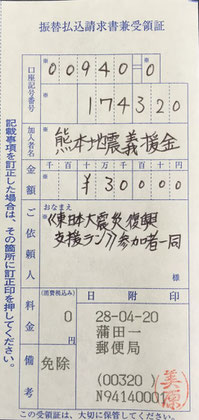 振替払込請求書兼受領証
口座記号番号
00940-0
174320
加入者名
熊本地震義援金
金額
千百十万千百十円
¥30000
ご依頼人
おなまえ
《東日本大震災復興
支援ラン》参加者一同
様
料金
(消費税込み)
0
円
備考
免除
日附印
28-04-20
蒲田一
郵便局
(00320)
N94140001
記載事項を訂正した場合は、その箇所に訂正印を押してください。
この受領証は、大切に保管してください。